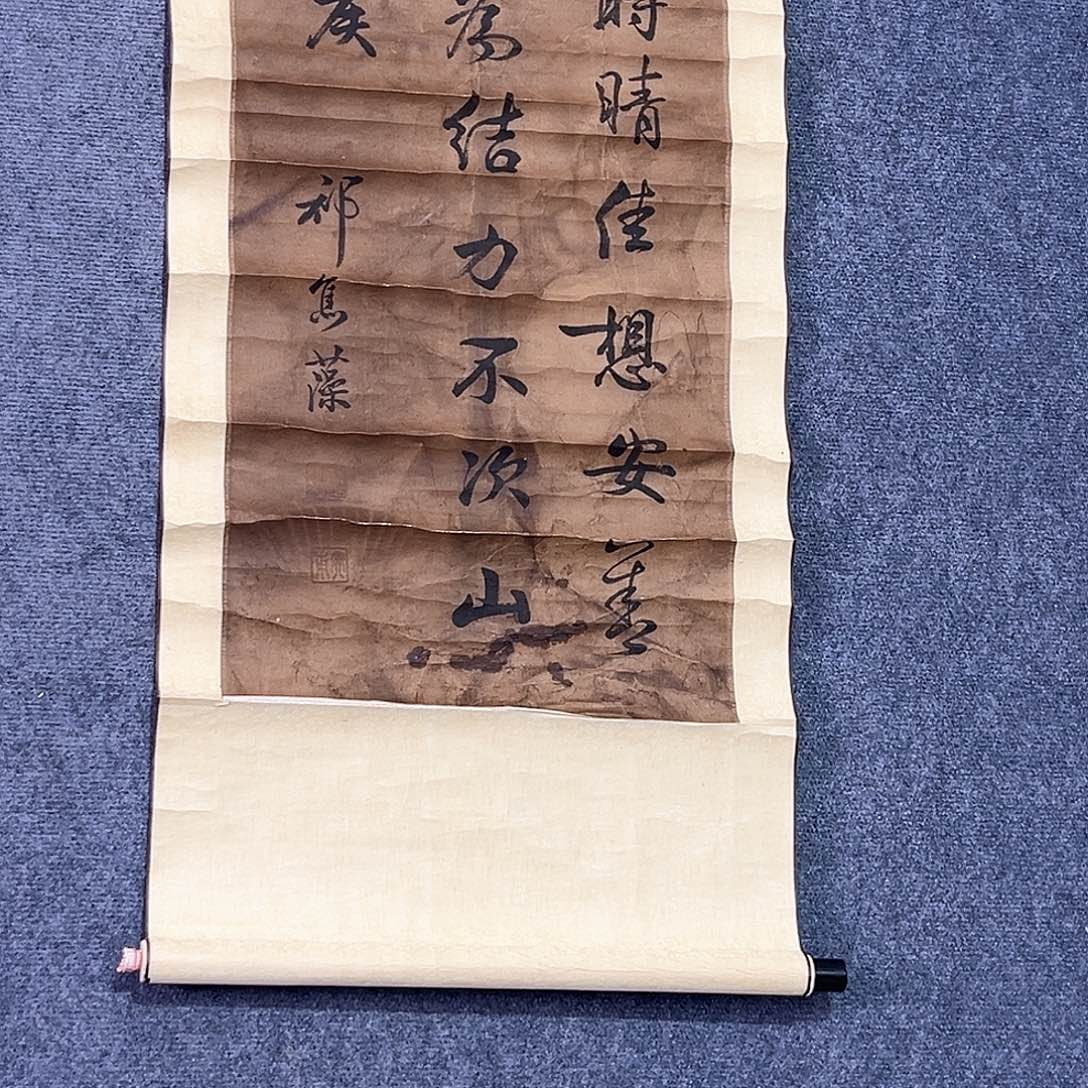 時晴佳想安善
為結力不次山
侯
祁寯藻